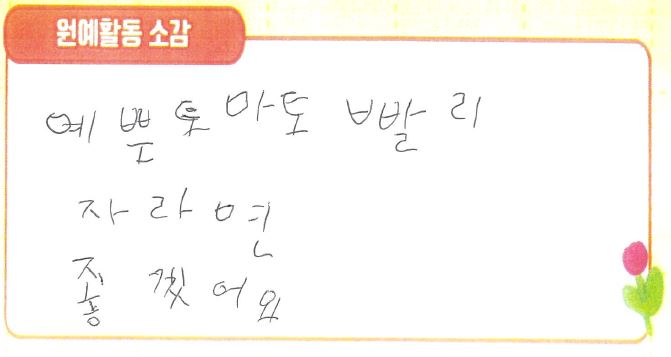 원예활동 소감
예쁜 토마도 빨리
자라면
좋겠어요